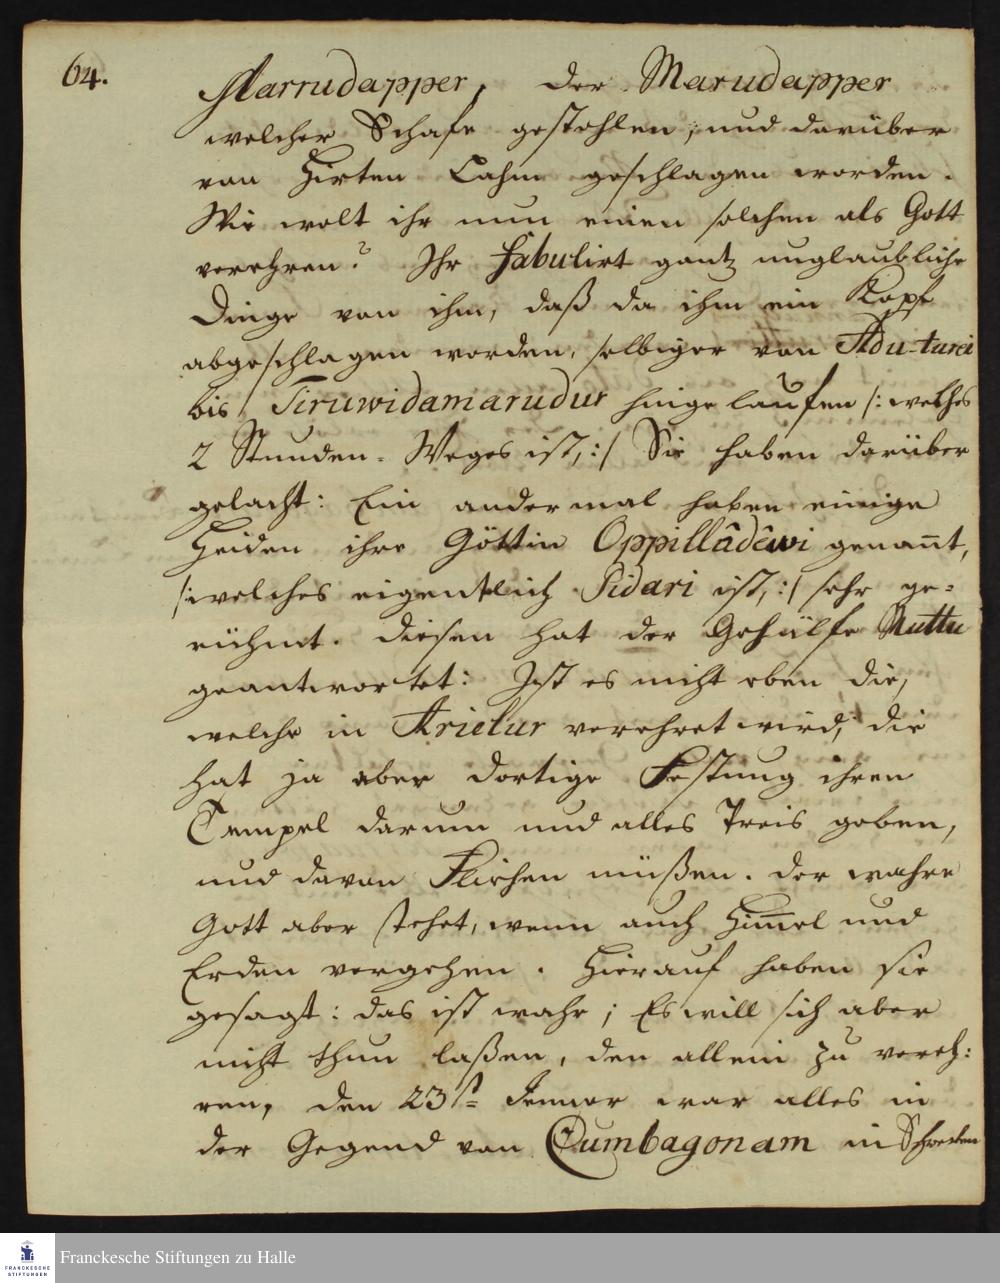 64.
Marrudapper, der Marudapper
welcher Schafe gestohlen, und darüber
von Hirten Lahm geschlagen worden.
Wie wolt ihr nun einen solchen als Gott
verehren? Ihr fabulirt gantz unglaubliche
Dinge von ihm, daß da ihm ein Kopf
abgeschlagen worden, selbiger von Adu-turei
bis Tiruwidamarudur hingelaufen /: welches
2 Stunden-Weges ist, :/ Sie haben darüber
gelacht: Ein andermal haben einige
Heiden ihre Göttin Oppillâdêwi genan̄t,
/: welches eigentlich Pidari ist, :/ sehr ge=
rühmt. diesen hat der Gehülfe Muttu
geantwortet: Ist es nicht eben die,
welche in Arielur verehret wird, die
hat ja aber dortige Festung ihren
Tempel darum und alles Preis geben,
und davon Fliehen müßen. der wahre
Gott aber stehet, wenn auch Him̄el und
Erden vergehen. Hierauf haben sie
gesagt: das ist wahr; Es will sich aber
nicht thun laßen, den allein zu vereh:
ren, den 23st= Jenner war alles in
der Gegend von Cumbagonam in Schrecken
Franckesche Stiftungen zu Halle
FRANCKESCHE
STIFTUNGEN